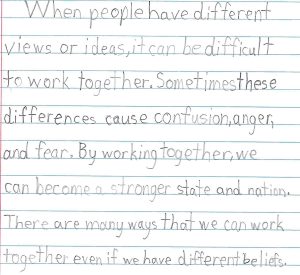 When people have different
views or ideas, it can be difficult
to work together. Sometimes these
differences cause confusion, anger,
and fear. By working together, we
can become a stronger state and nation.
There are many ways that we can work
together even if we have different beliefs.